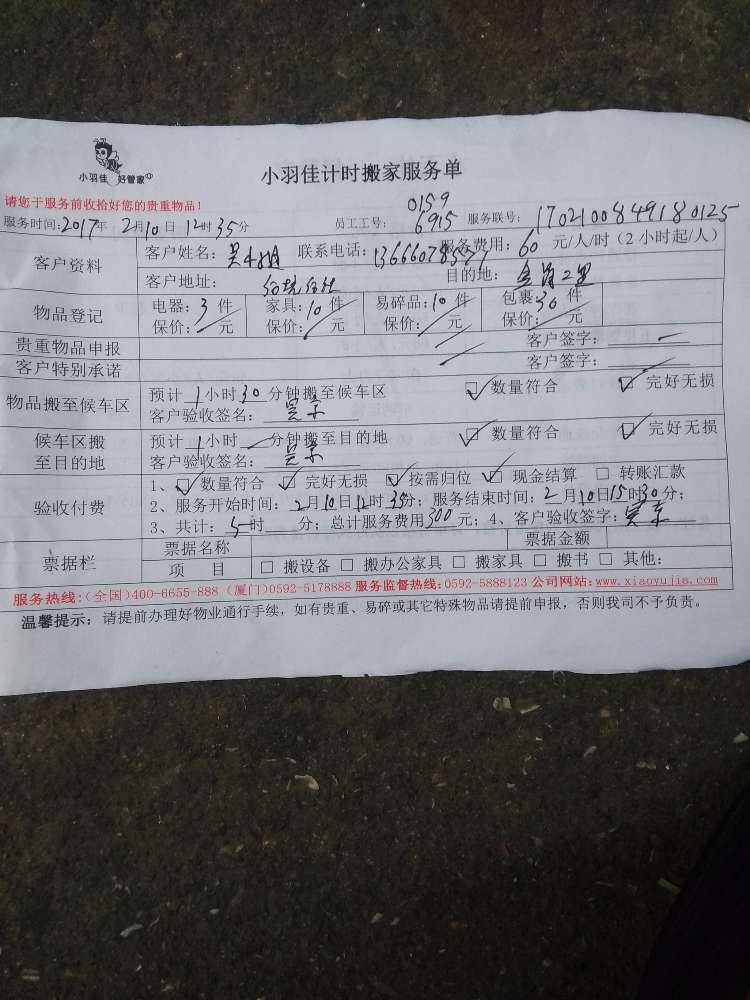 小羽佳 好管家
小羽佳计时搬家服务单
请您于服务前收拾好您的贵重物品!
服务时间:2017年2月10日12时35分 员工工号: 0159 6915 服务联号: 170210084918 0125
客户资料 客户姓名: 吴小姐 联系电话: 服务费用: 60 元/人/时(2小时起/人)
客户地址: 目的地:
物品登记 电器: 3 件 家具: 10 件 易碎品: 10 件 包裹: 30 件
保价: 元 保价: 元 保价: 元 保价: 元
贵重物品申报 客户签字:
客户特别承诺 客户签字:
物品搬至候车区 预计 1 小时 30 分钟搬至候车区 数量符合 完好无损
客户验收签名:
候车区搬至目的地 预计 1 小时 分钟搬至目的地 数量符合 完好无损
客户验收签名:
验收付费 1、数量符合 完好无损 按需归位 现金结算 转账汇款
2、服务开始时间: 2月10日12时35分; 服务结束时间: 2月10日15时30分;
3、共计: 5 时 分; 总计服务费用 300 元; 4、客户验收签字:
票据栏 票据名称 票据金额
项 目 搬设备 搬办公家具 搬家具 搬书 其他:
服务热线:(全国)400-6655-888 (厦门)0592-5178888 服务监督热线:0592-5888123 公司网站:www.xiaoyujia.com
温馨提示: 请提前办理好物业通行手续, 如有贵重、易碎或其它特殊物品请提前申报, 否则我司不予负责。